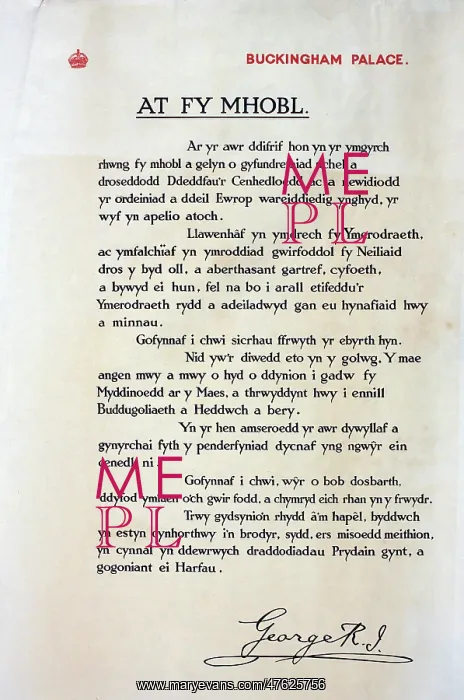 BUCKINGHAM PALACE.
AT FY MHOBL.
Ar yr awr ddifrif hon yn yr ymgyrch
rhwng fy mhobl a gelyn o gyfundrefniad uchel a
droseddodd Ddeddfau'r Cenhedloedd ac a newidiodd
yr ordeiniad a ddeil Ewrop wareiddiedig ynghyd, yr
wyf yn apelio atoch.
Llawenhâf yn ymdrech fy Ymerodraeth,
ac ymfalchïaf yn ymroddiad gwirfoddol fy Neiliaid
dros y byd oll, a aberthasant gartref, cyfoeth,
a bywyd ei hun, fel na bo i arall etifeddu'r
Ymerodraeth rydd a adeiladwyd gan eu hynafiaid hwy
a minnau.
Gofynnaf i chwi sicrhau ffrwyth yr ebyrth hyn.
Nid yw'r diwedd eto yn y golwg. Y mae
angen mwy a mwy o hyd o ddynion i gadw fy
Myddinoedd ar y Maes, a thrwyddynt hwy i ennill
Buddugoliaeth a Heddwch a bery.
Yn yr hen amseroedd yr awr dywyllaf a
gynyrchai fyth y penderfyniad dycnaf yng ngwŷr ein
cenedl ni.
Gofynnaf i chwi, wŷr o bob dosbarth,
ddyfod ymlaen o'ch gwir fodd, a chymryd eich rhan yn y frwydr.
Trwy gydsynio'n rhydd â'm hapêl, byddwch
yn estyn cynhorthwy i'n brodyr, sydd, ers misoedd meithion,
yn cynnal yn ddewrwych draddodiadau Prydain gynt, a
gogoniant ei Harfau.
George R.I.
ME
PL
ME
PL
www.maryevans.com/47625756